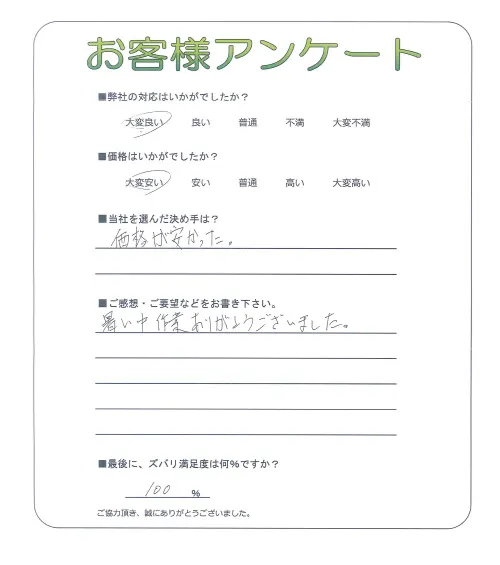 お客様アンケート
■弊社の対応はいかがでしたか？
大変良い 良い 普通 不満 大変不満
■価格はいかがでしたか？
大変安い 安い 普通 高い 大変高い
■当社を選んだ決め手は？
価格が安かった。
■ご感想・ご要望などをお書き下さい。
暑い中作業ありがとうございました。
■最後に、ズバリ満足度は何%ですか？
100 %
ご協力頂き、誠にありがとうございました。